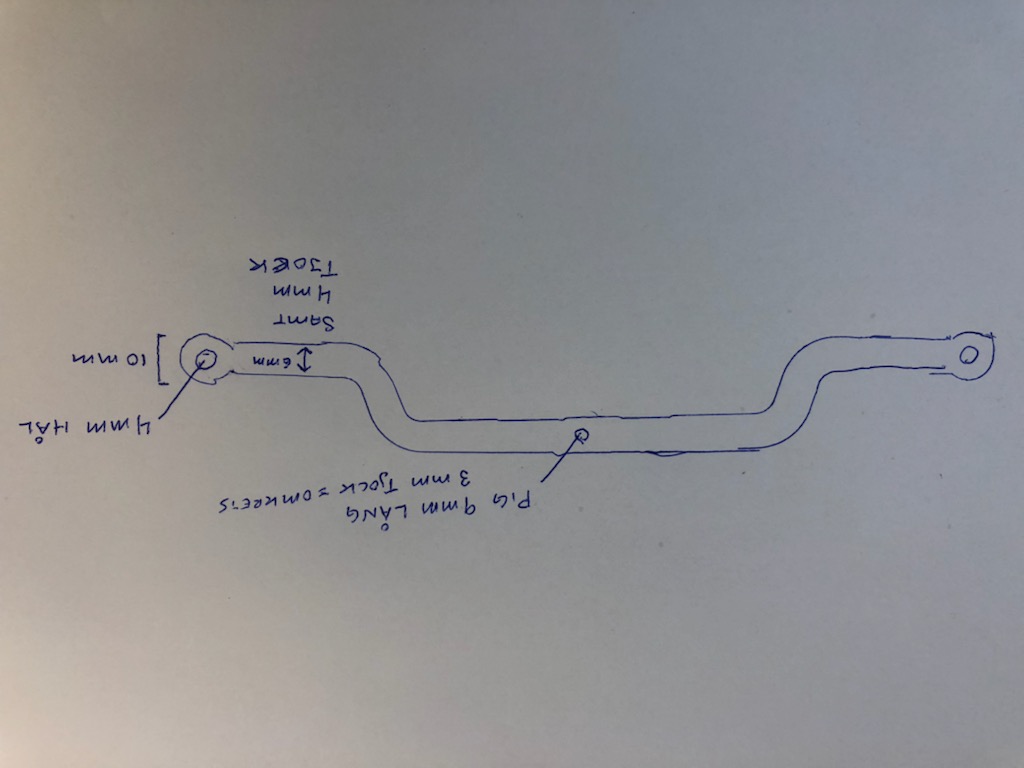 PIG 9mm LÅNG
3 mm TJOCK = OMKRETS
4 mm HÅL
6mm
10 mm
SAMT
4mm
TJOCK